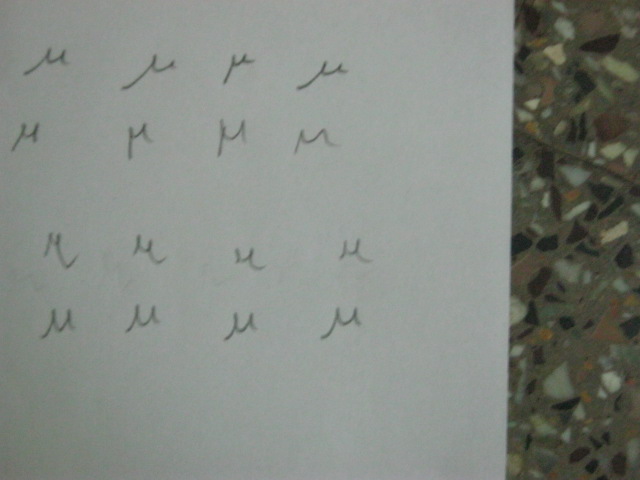 μ μ μ μ
μ μ μ μ
μ μ μ μ
μ μ μ μ